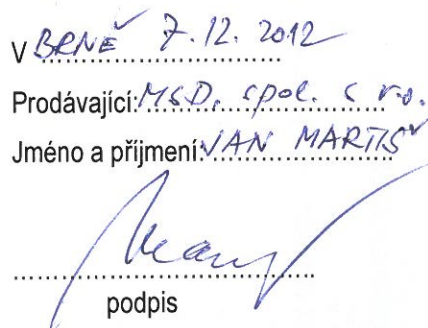 V BRNĚ 7.12.2012
Prodávající: MSD, spol. s r.o.
Jméno a příjmení: JAN MARTIŠ
podpis